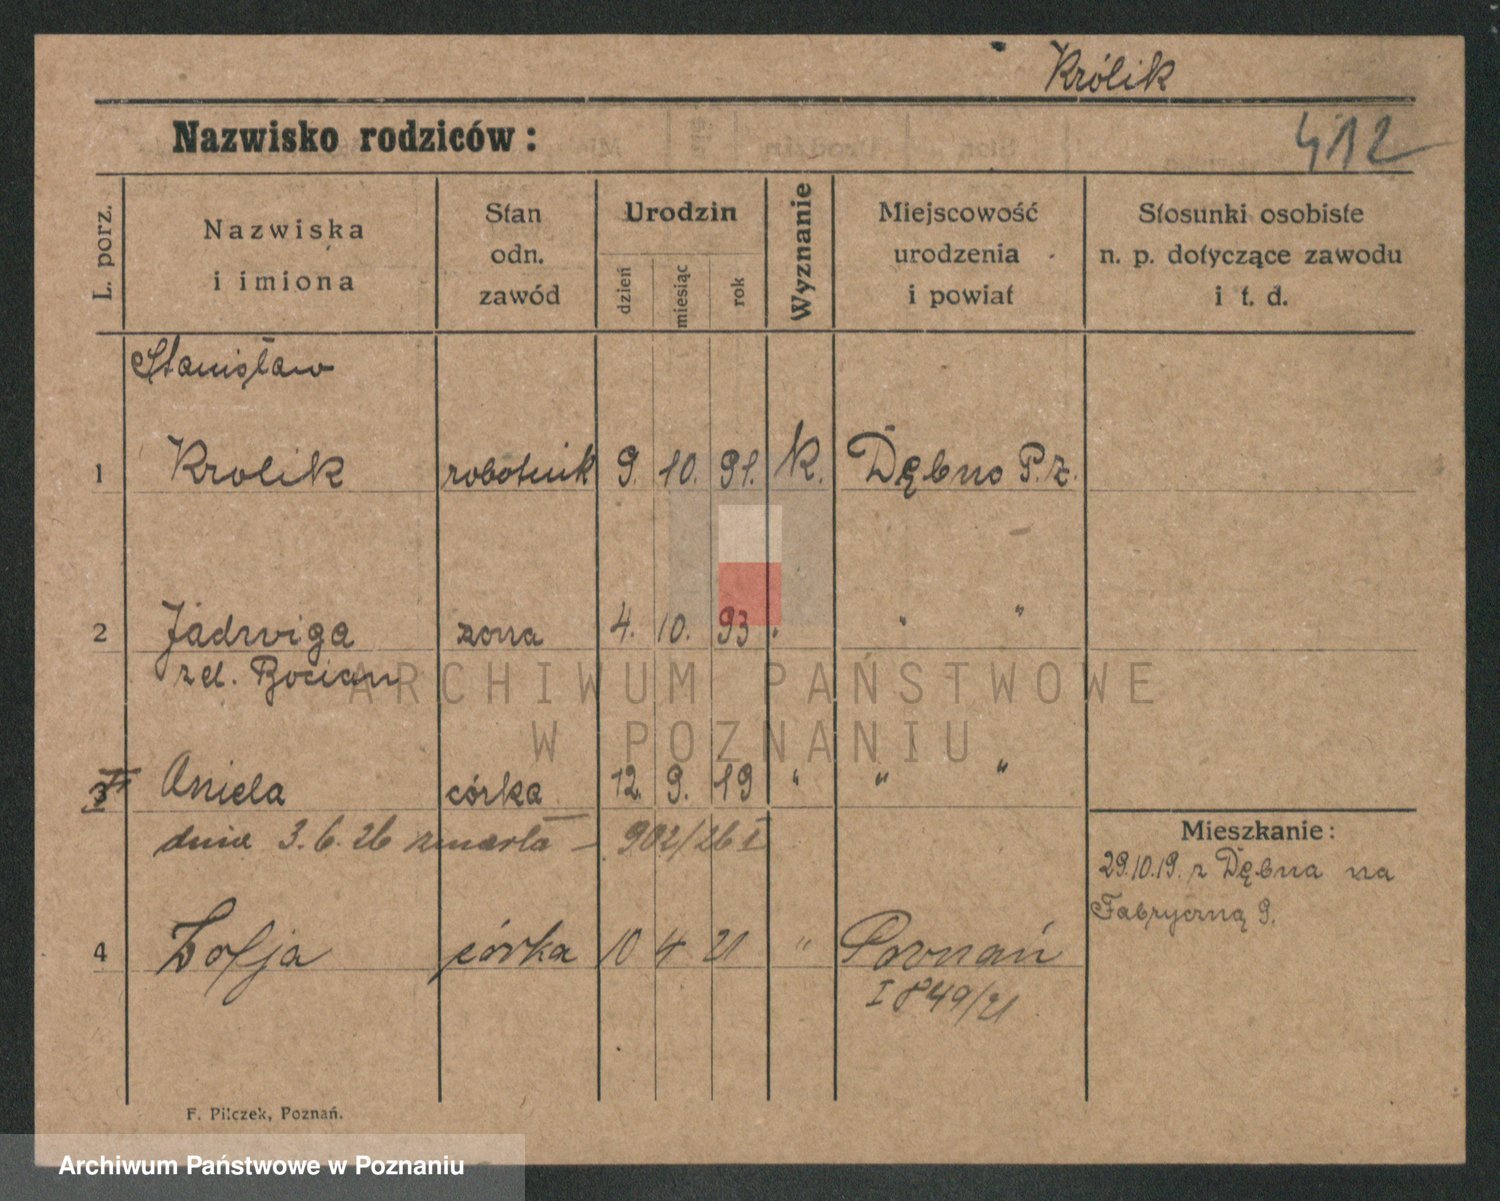 Królik
Nazwisko rodziców:
412
L. porz.
Nazwiska
i imiona
Stan
odn.
zawód
Urodzin
dzień
miesiąc
rok
Wyznanie
Miejscowość
urodzenia
i powiat
Stosunki osobiste
n. p. dotyczące zawodu
i t. d.
Stanisław
1 Krolik robotnik 9. 10. 91. k. Dębno P.z.
2 Jadwiga zona 4. 10. 93 " " "
zd. Bocian
ARCHIWUM PAŃSTWOWE
W POZNANIU
3 Aniela córka 12. 9. 19 " " "
dnia 3.6.26 zmarła – 902/26 I
Mieszkanie:
29.10.19. z Dębna na
Fabryczną 9.
4 Zofja córka 10 4 21 " Poznań
I 849/21
F. Pilczek, Poznań.
Archiwum Państwowe w Poznaniu